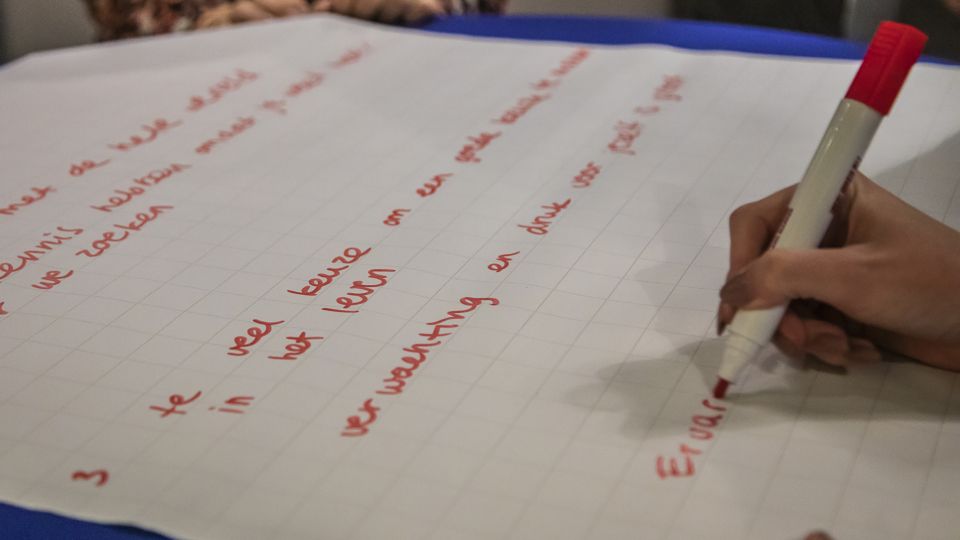 met de hele wereld
kennis hebben omdat je veel
we zoeken
3 te veel keuze om een goede keuze te maken
in het leven
verwachting en druk voor jezelf is groot
Ervar